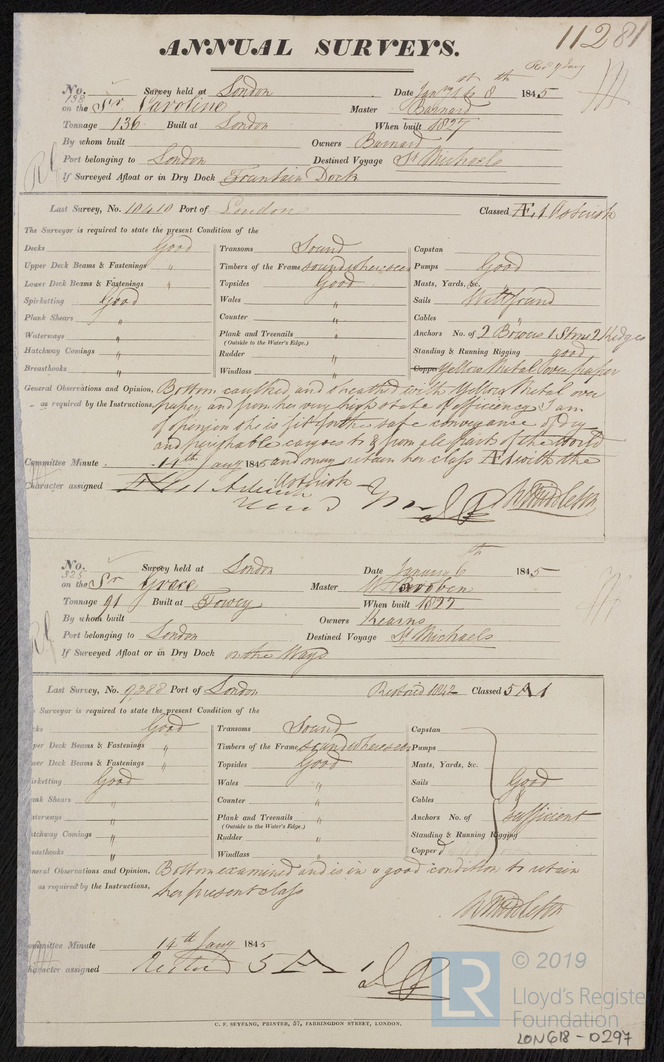 11281
ANNUAL SURVEYS.
Recd 9 Jany
No. 198 Survey held at London Date Jany 1st to 8th 1845
on the Sr Caroline Master Barnard
Tonnage 136 Built at London When built 1827
By whom built Owners Barnard
Port belonging to London Destined Voyage St Michaels
If Surveyed Afloat or in Dry Dock Fountain Dock
Last Survey, No. 10410 Port of London Classed Æ 1 Asterisk
The Surveyor is required to state the present Condition of the
Decks Good Transoms Sound Capstan
Upper Deck Beams & Fastenings " Timbers of the Frame sound where seen Pumps Good
Lower Deck Beams & Fastenings " Topsides Good Masts, Yards, &c.
Spirketting Good Wales " Sails Well found
Plank Shears " Counter " Cables "
Waterways " Plank and Treenails " Anchors No. of 2 Bowers 1 Strm 2 Kedges
(Outside to the Water's Edge.)
Hatchway Comings " Rudder " Standing & Running Rigging good
Breasthooks " Windlass " Copper Yellow Metal over paper
General Observations and Opinion, Bottom caulked and sheathed with Yellow Metal over
as required by the Instructions, paper, and from her very high state of efficiency I am
of openion she is fit for the safe conveyance of Dry
and perishable cargoes to & from all parts of the World
Committee Minute 14th Jany 1845 and may retain her class Æ 1 with the
Asterisk
Character assigned Æ 1
W Middleton
No. 325 Survey held at London Date January 6th 1845
on the Sr Grace Master
Tonnage 91 Built at Fowey When built 1822
By whom built Owners Kearns
Port belonging to London Destined Voyage St Michaels
If Surveyed Afloat or in Dry Dock on the Ways
Last Survey, No. 9388 Port of London Restored 1842 Classed 5 A 1
Surveyor is required to state the present Condition of the
cks Good Transoms Sound Capstan
per Deck Beams & Fastenings " Timbers of the Frame sound where seen Pumps
wer Deck Beams & Fastenings " Topsides Good Masts, Yards, &c.
irketting Good Wales " Sails Good
ank Shears " Counter " Cables &
aterways " Plank and Treenails " Anchors No. of Sufficient
(Outside to the Water's Edge.)
atchway Comings " Rudder " Standing & Running Rigging
easthooks " Windlass " Copper'd
eneral Observations and Opinion, Bottom examined and is in a good condition to retain
as required by the Instructions, her present class
W Middleton
ommittee Minute 14th Jany 1845
haracter assigned 5 A 1
C. F. SEYFANG, PRINTER, 57, FARRINGDON STREET, LONDON.
LR © 2019
Lloyd's Register
Foundation
LON618-0297